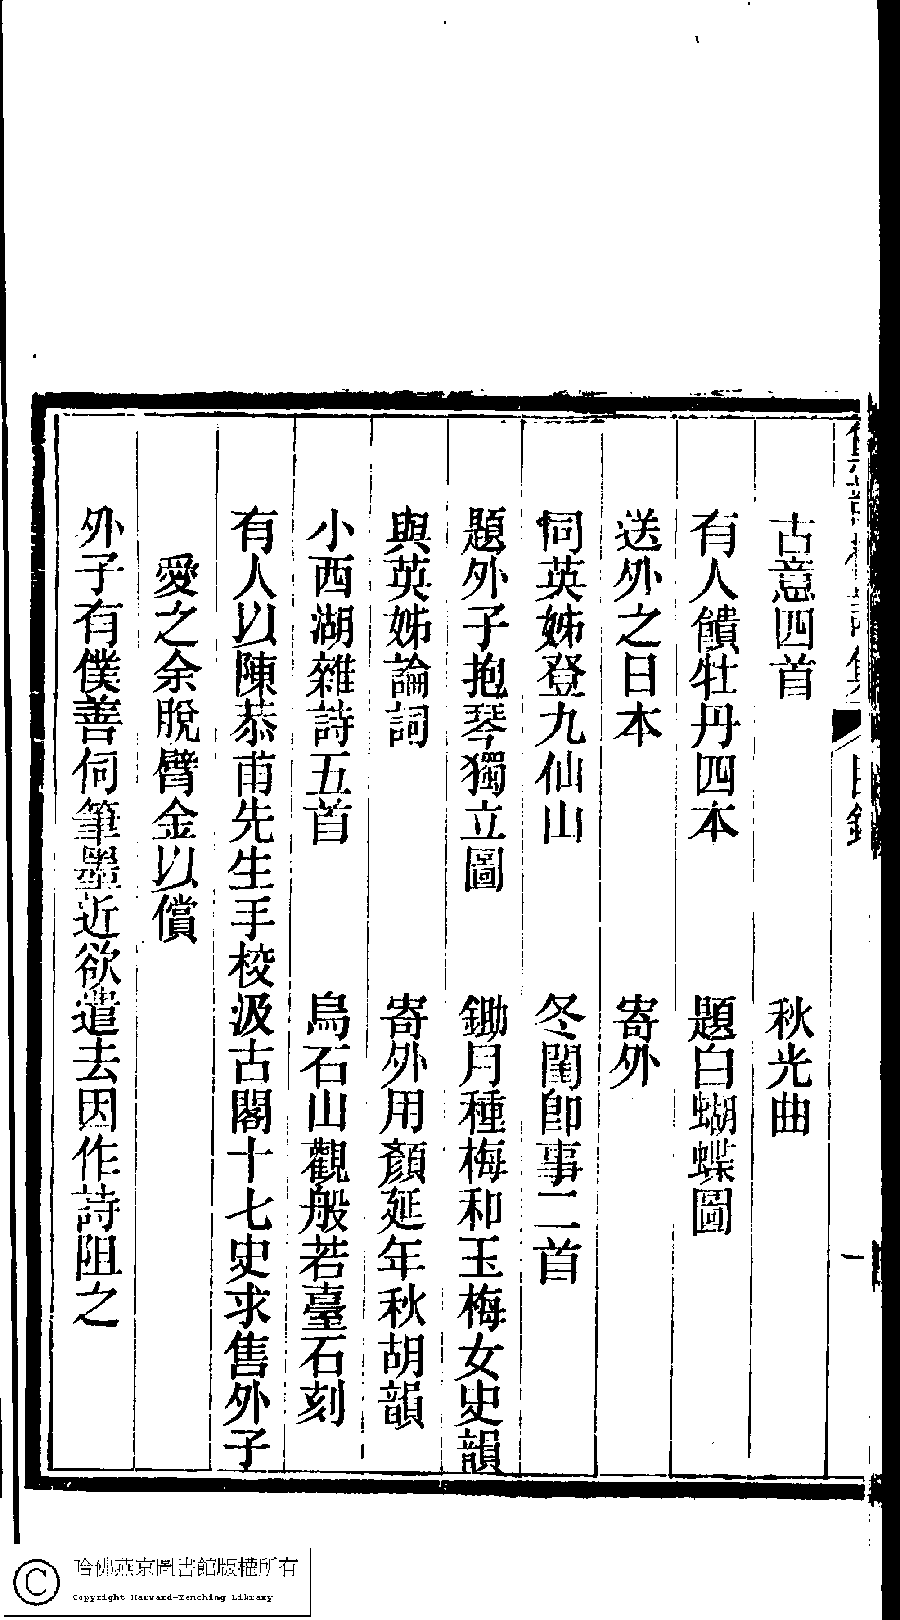 古意四首　秋光曲
有人饋牡丹四本　題白蝴蝶圖
送外之日本　寄外
同英姊登九仙山　冬閨卽事二首
題外子抱琴獨立圖　鋤月種梅和玉梅女史韻
與英姊論詞　寄外用顏延年秋胡韻
小西湖雜詩五首　烏石山觀般若臺石刻
有人以陳恭甫先生手校汲古閣十七史求售外子
愛之余脫臂金以償
外子有僕善伺筆墨近欲遣去因作詩阻之
哈佛燕京圖書館版權所有
Copyright Harvard-Yenching Library